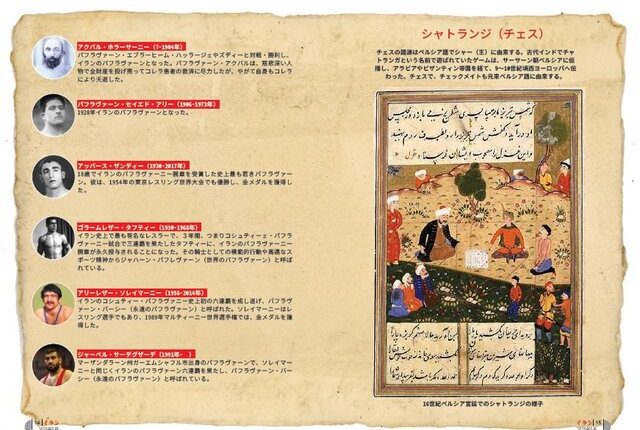 アクバル・ホラーサーニー（?-1904年）
パフラヴァーン・エブラーヒーム・ハッラージェヤズディーと対戦・勝利し、
イランのパフラヴァーンとなった。パフラヴァーン・アクバルは、慈悲深い
人物で全財産を投げ売ってコレラ患者の救済に尽力したが、やがて自身もコレラ
により天逝した。
パフラヴァーン・セイエド・アリー（1906-1973年）
1928年イランのパフラヴァーンとなった。
アッバース・ザンディー（1930-2017年）
18歳でイランのパフラヴァーニー腕章を受賞した史上最も若きパフラヴァー
ン。彼は、1954年の東京レスリング世界大会でも優勝し、金メダルを獲得し
た。
ゴラームレザー・タフティー（1930-1968年）
イラン史上で最も有名なレスラーで、３年間、つまりコシュティーエ・パフラ
ヴァーニー試合で三連覇を果たしたタフティーに、イランのパフラヴァーニー
腕章が永久授与されることになった。その騎士としての模範的行動や高邁なス
ポーツ精神からジャハーン・パフレヴァーン（世界のパフラヴァーン）と呼ば
れている。
アリーレザー・ソレイマーニー（1956-2014年）
イランのコシュティー・パフラヴァーニー史上初の六連覇を成し遂げ、パフラヴ
ァーン・パーシー（永遠のパフラヴァーン）と呼ばれた。ソレイマーニーはレ
スリング選手でもあり、1989年マルティーニー世界選手権では、金メダルを獲
得した。
ジャーベル・サーデグザーデ（1991年- ）
マーザンダラーン州ガーエムシャフル市出身のパフラヴァーンで、ソレイマー
ニーと同じくイランのパフラヴァーン六連覇を果たし、パフラヴァーン・パー
シー（永遠のパフラヴァーン）と呼ばれている。
シャトランジ（チェス）
チェスの語源はペルシア語でシャー（王）に由来する。古代インドでチャ
トランガという名前で遊ばれていたゲームは、サーサーン朝ペルシアに伝
播し、アラビアやビザンティン帝国を経て、9～10世紀頃西ヨーロッパへ伝
わった。チェスで、チェックメイトも元来ペルシア語に由来する。
16世紀ペルシア宮廷でのシャトランジの様子
イラン
イラン 15